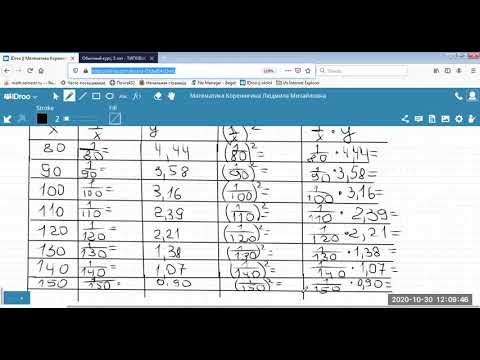 IDroo || Математика Коренн
Обычный курс, 5 кл
110%
Часто посещаемые
Начальная страница
File Manager - Beget
IDroo
Математика Коренякина Людмила Михайловна
Stroke
Fill
2
x 1/x y (1/x)² 1/x · y
80 1/80 = 4,44 (1/80)² = 1/80 · 4,44 =
90 1/90 = 3,58 (1/90)² = 1/90 · 3,58 =
100 1/100 = 3,16 (1/100)² = 1/100 · 3,16 =
110 1/110 = 2,39 (1/110)² = 1/110 · 2,39 =
120 1/120 = 2,21 (1/120)² = 1/120 · 2,21 =
130 1/130 = 1,38 (1/130)² = 1/130 · 1,38 =
140 1/140 = 1,07 (1/140)² = 1/140 · 1,07 =
150 1/150 = 0,90 (1/150)² = 1/150 · 0,90 =
2020-10-30 12:09:46